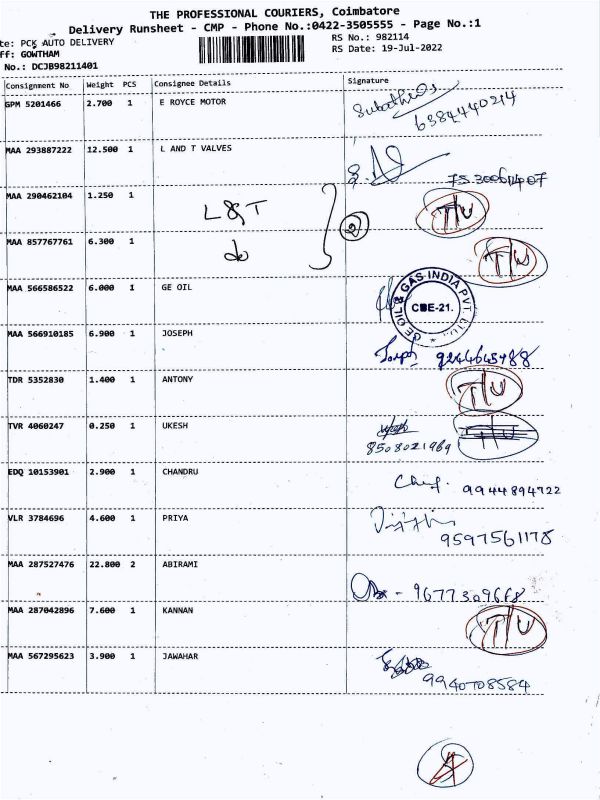 THE PROFESSIONAL COURIERS, Coimbatore
Delivery Runsheet - CMP - Phone No.:0422-3505555 - Page No.:1
te: PCK AUTO DELIVERY RS No.: 982114
ff: GOWTHAM RS Date: 19-Jul-2022
No.: DCJB98211401
Consignment No Weight PCS Consignee Details Signature
GPM 5201466 2.700 1 E ROYCE MOTOR
6384440214
MAA 293887222 12.500 1 L AND T VALVES
MAA 290462104 1.250 1 L&T T/U
2
MAA 857767761 6.300 1 do T/U
MAA 566586522 6.000 1 GE OIL
GE OIL & GAS INDIA PVT. LTD. CBE-21.
MAA 566910185 6.900 1 JOSEPH
Joseph
TDR 5352830 1.400 1 ANTONY T/U
TVR 4060247 0.250 1 UKESH T/U
8508021969
EDQ 10153901 2.900 1 CHANDRU
9944894722
VLR 3784696 4.600 1 PRIYA
9597561178
MAA 287527476 22.800 2 ABIRAMI
9677309668
MAA 287042896 7.600 1 KANNAN T/U
MAA 567295623 3.900 1 JAWAHAR
9940708584